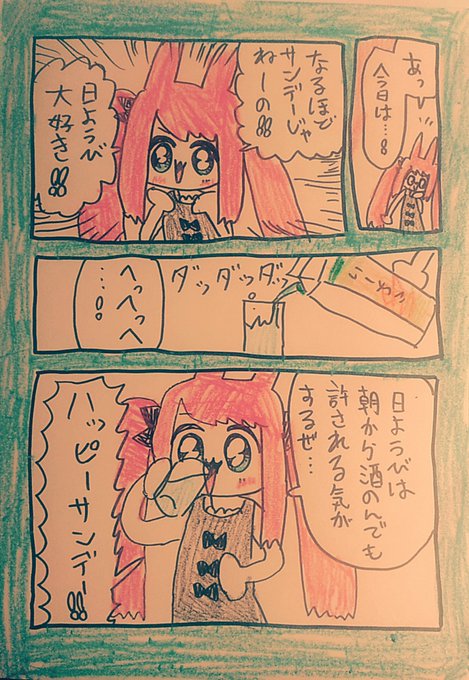 あっ
今日は…!
なるほど
サンデーじゃ
ねーの!!
日ようび
大好き!!
ダッダッダッ
へっへっへ
…!!
日ようびは
朝から酒のんでも
許される気が
するぜ…
ハッピーサンデー!!